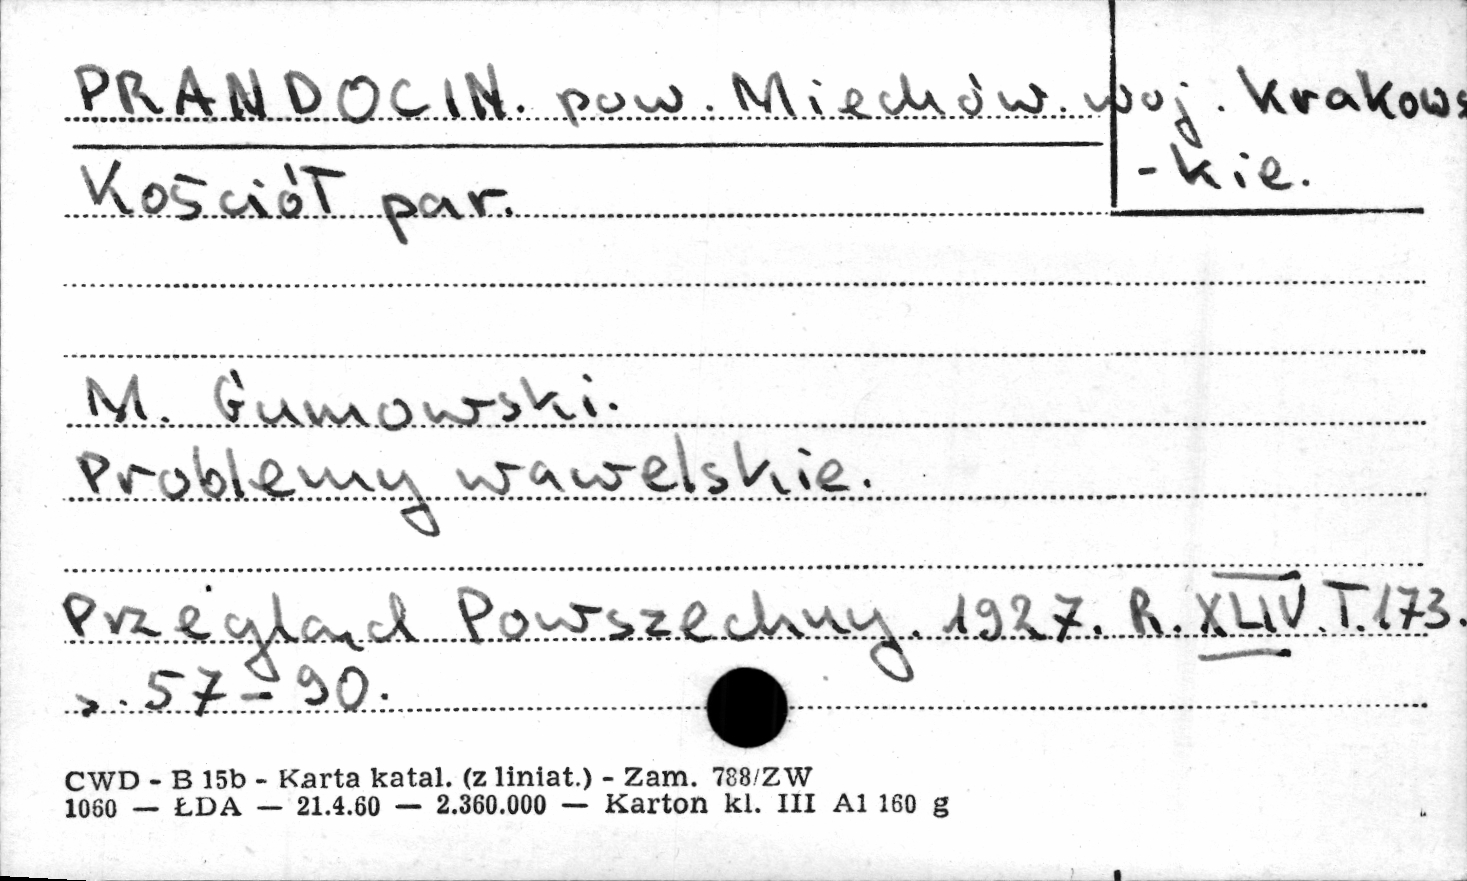 PRANDOCIN. pow. Miechów. woj. Krakows
-kie.
Kościół par.
M. Gumowski.
Problemy wawelskie.
Przegląd Powszechny. 1927. R. XLIV. T. 173.
s. 57-90.
CWD - B 15b - Karta katal. (z liniat.) - Zam. 788/ZW
1060 — ŁDA — 21.4.60 — 2.360.000 — Karton kl. III A1 160 g